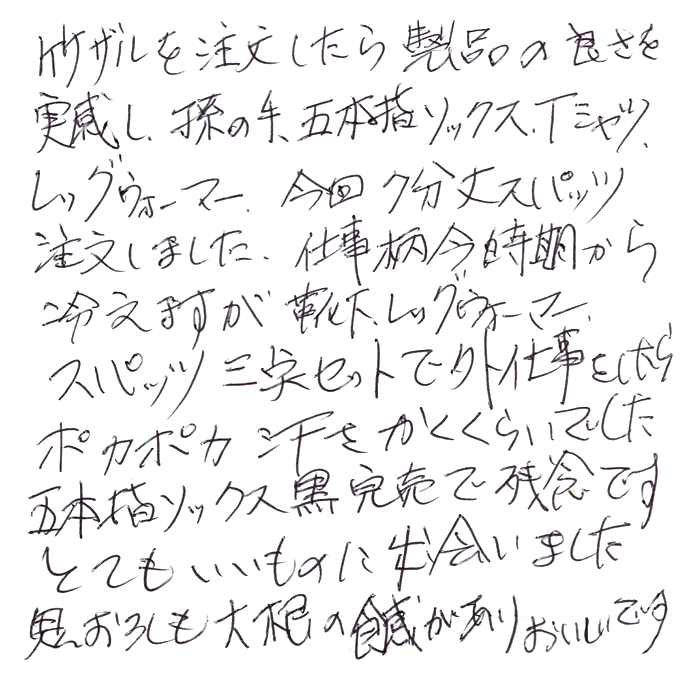 竹ザルを注文したら製品の良さを
実感し、孫の手、五本指ソックス、Tシャツ、
レッグウォーマー、今回7分丈スパッツ
注文しました、仕事柄今時期から
冷えますが靴下、レッグウォーマー、
スパッツ三点セットで外仕事をしたら
ポカポカ汗をかくくらいでした
五本指ソックス黒完売で残念です
とてもいいものに出会いました
鬼おろしも大根の食感がありおいしいです